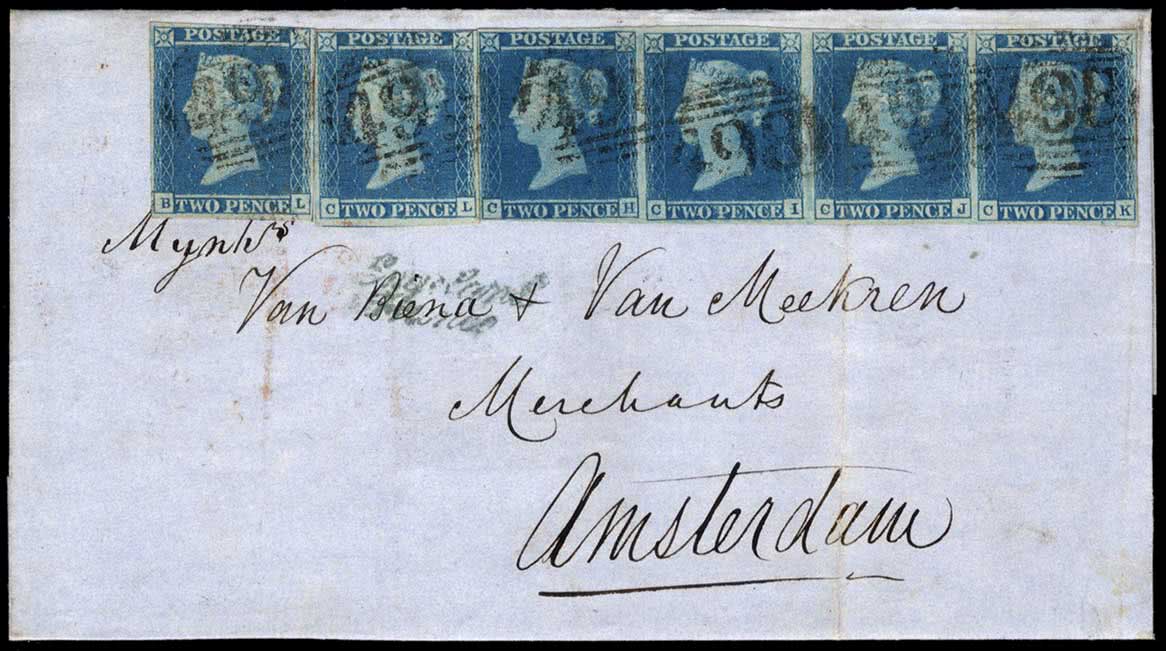 POSTAGE POSTAGE POSTAGE POSTAGE POSTAGE POSTAGE
B TWO PENCE L C TWO PENCE L C TWO PENCE H C TWO PENCE I C TWO PENCE J C TWO PENCE K
Van Biena & Van Meekren
Merchants
Amsterdam